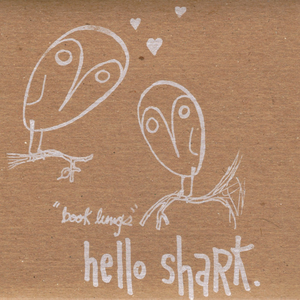 "book lungs"
hello shark.